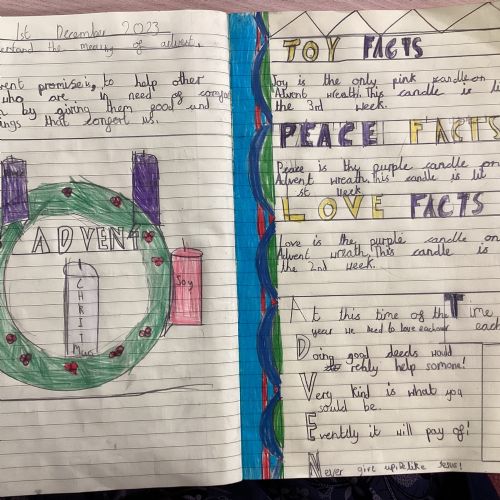 1st December 2023
derstand the meaning of advent.
vent promise is, to help other
who are in need of
n by giving them food and
ings that us.
ADVENT
CHRIST
Mas
Joy
JOY FACTS
Joy is the only pink candle on
Advent wreath. This candle is li
the 3rd week.
PEACE FACTS
Peace is thy purple candle on
Advent wreath. This candle is lit
1st week.
LOVE FACTS
Love is the purple candle on
Advent wreath. This candle is
the 2nd week.
At this time of the Time
year we need to love eachother each
Doing good deeds would
really help somone!
Very kind is what you
sould be.
Eventlly it will pay of!
Never give up, be like Jesus!